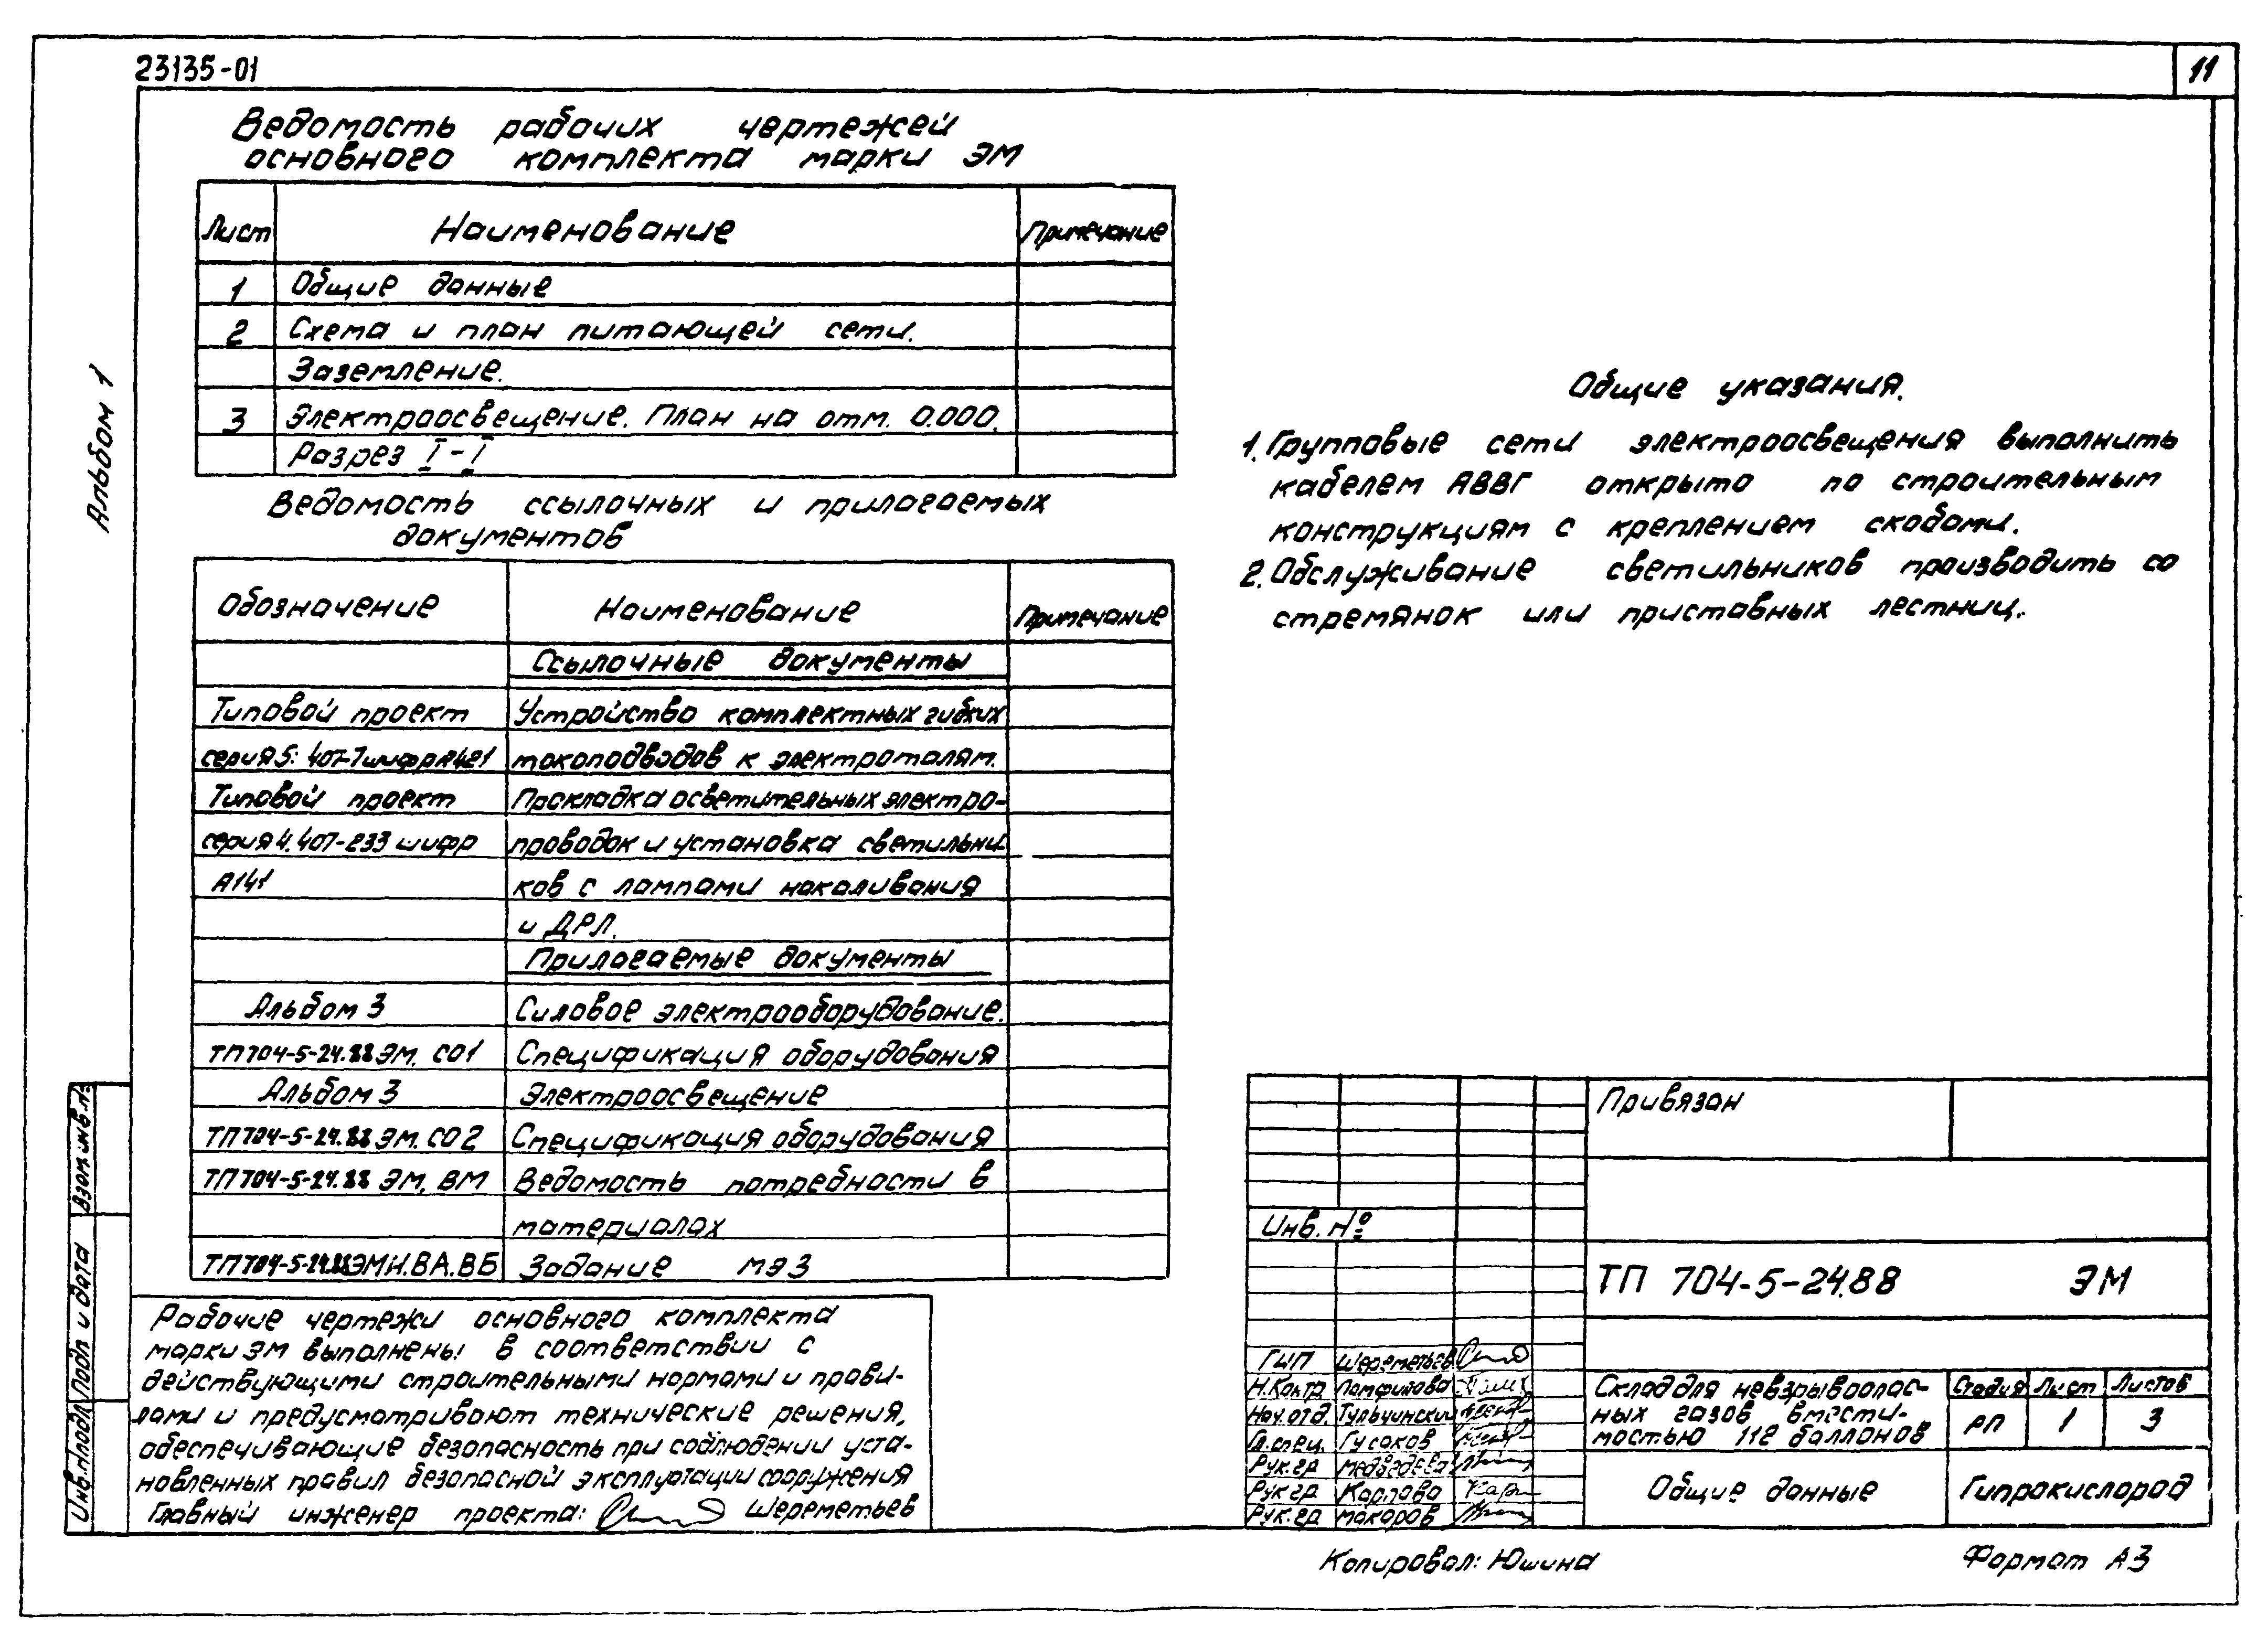 23135-01
11
Альбом 1
Ведомость рабочих чертежей
основного комплекта марки ЭМ
Лист Наименование Примечание
1 Общие данные
2 Схема и план питающей сети.
Заземление.
3 Электроосвещение. План на отм. 0.000.
Разрез I-I
Ведомость ссылочных и прилагаемых
документов
Обозначение Наименование Примечание
Ссылочные документы
Типовой проект Устройство комплектных гибких
серия 5.407-7 шифр токоподводов к электроталям.
Типовой проект Прокладка осветительных электро-
серия 4.407-233 шифр проводок и установка светильни-
А141 ков с лампами накаливания
и ДРЛ.
Прилагаемые документы
Альбом 3 Силовое электрооборудование.
ТП 704-5-24.88 ЭМ. СО1 Спецификация оборудования
Альбом 3 Электроосвещение
ТП 704-5-24.88 ЭМ. СО2 Спецификация оборудования
ТП 704-5-24.88 ЭМ. ВМ Ведомость потребности в
материалах
ТП 704-5-24.88 ЭМН.ВА.ВБ Задание МЭЗ
Рабочие чертежи основного комплекта
марки ЭМ выполнены в соответствии с
действующими строительными нормами и прави-
лами и предусматривают технические решения,
обеспечивающие безопасность при соблюдении уста-
новленных правил безопасной эксплуатации сооружения
Главный инженер проекта: Шереметьев
Общие указания.
1. Групповые сети электроосвещения выполнить
кабелем АВВГ открыто по строительным
конструкциям с креплением скобами.
2. Обслуживание светильников производить со
стремянок или приставных лестниц.
Привязан
Инв. №
ТП 704-5-24.88 ЭМ
ГИП Шереметьев
Н.Контр Памфилова
Нач.отд. Тульчинский
Гл.спец. Гусаков
Рук.гр Медведева
Рук.гр Карпова
Рук.гр Макаров
Склад для невзрывоопас-
ных газов вмести-
мостью 112 баллонов
Стадия Лист Листов
РП 1 3
Общие данные
Гипрокислород
Взам.инв.№
Подп и дата
Инв.№подл
Копировал: Юшина
Формат А3